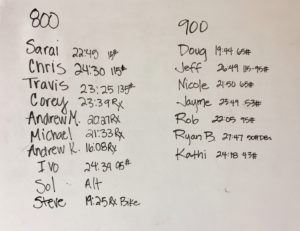 800
Sarai 22:45
Chris 24:30 115#
Travis 23:25 135#
Corey 23:39 Rx
Andrew M. 20:37 Rx
Michael 21:33 Rx
Andrew K. 16:08 Rx
Ivo 24:39 95#
Sol Alt
Steve 19:25 Rx Bike
900
Doug 19:44 65#
Jeff 26:49 115-95#
Nicole 21:50 65#
Jayme 23:49 53#
Rob 22:05 95#
Ryan B 27:47 50#DBs
Kathi 24:18 43#